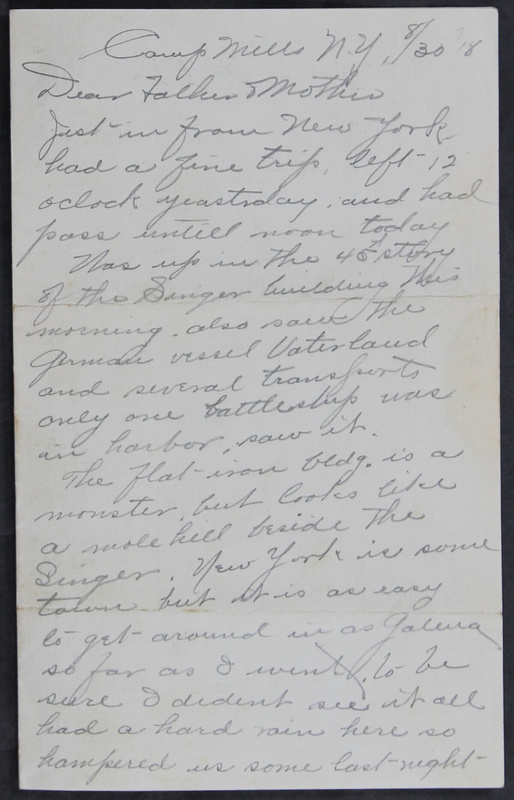 Camp Mills N.Y, 8/30 '18
Dear Father & Mother
Just in from New York
had a fine trip, left 12
oclock yeastrday, and had
pass untill noon today
Was up in the 45th story
of the Singer building this
morning. also saw the
German vessel Vaterland
and several transports
only one battleship was
in harbor, saw it.
The flat-iron bldg. is a
monster, but looks like
a mole hill beside the
Singer. New York is some
town but it is as easy
to get around in as Galena
so far as I went, to be
sure I dident see it all
had a hard rain here so
hampered us some last night-